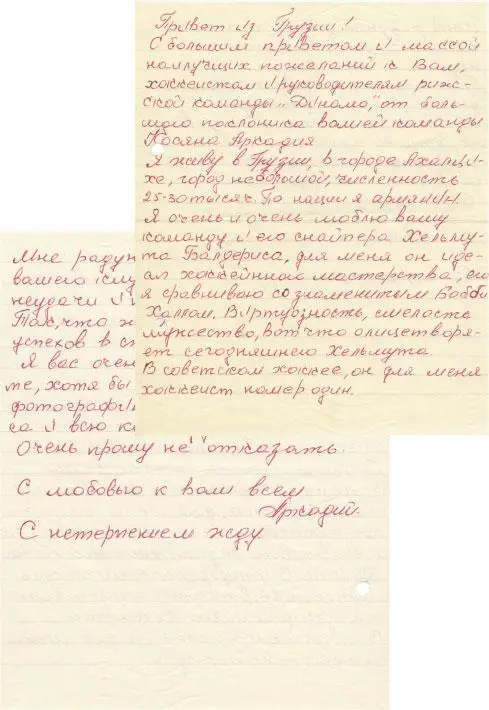 Привет из Грузии!
С большим приветом и массой
наилучших пожеланий к Вам,
хоккеистам и руководителям риж-
ской команды "Динамо," от боль-
шого поклоника вашей команды
Косяна Аркадия
Я живу в Грузии, в городе Ахалци-
хе, город небольшой, численность
25-30 тысяч. По нации я армянин.
Я очень и очень люблю вашу
команду и его снайпера Хельму-
та Балдериса, для меня он иде-
ал хоккейного мастерства, его
я сравниваю со знаменитым Бобби
Халлом. Виртуозность, смелость
мужество, вот что олицетворя-
ет сегодняшнего Хельмута.
В советском хоккее, он для меня
хоккеист номер один.
Мне радун
вашего
неудачи и
Так, что
успехов в
Я вас очен
те, хотя бы
фотографи
са и всю к
Очень прошу не отказать.
С любовью к вам всем
Аркадий.
С нетерпением жду